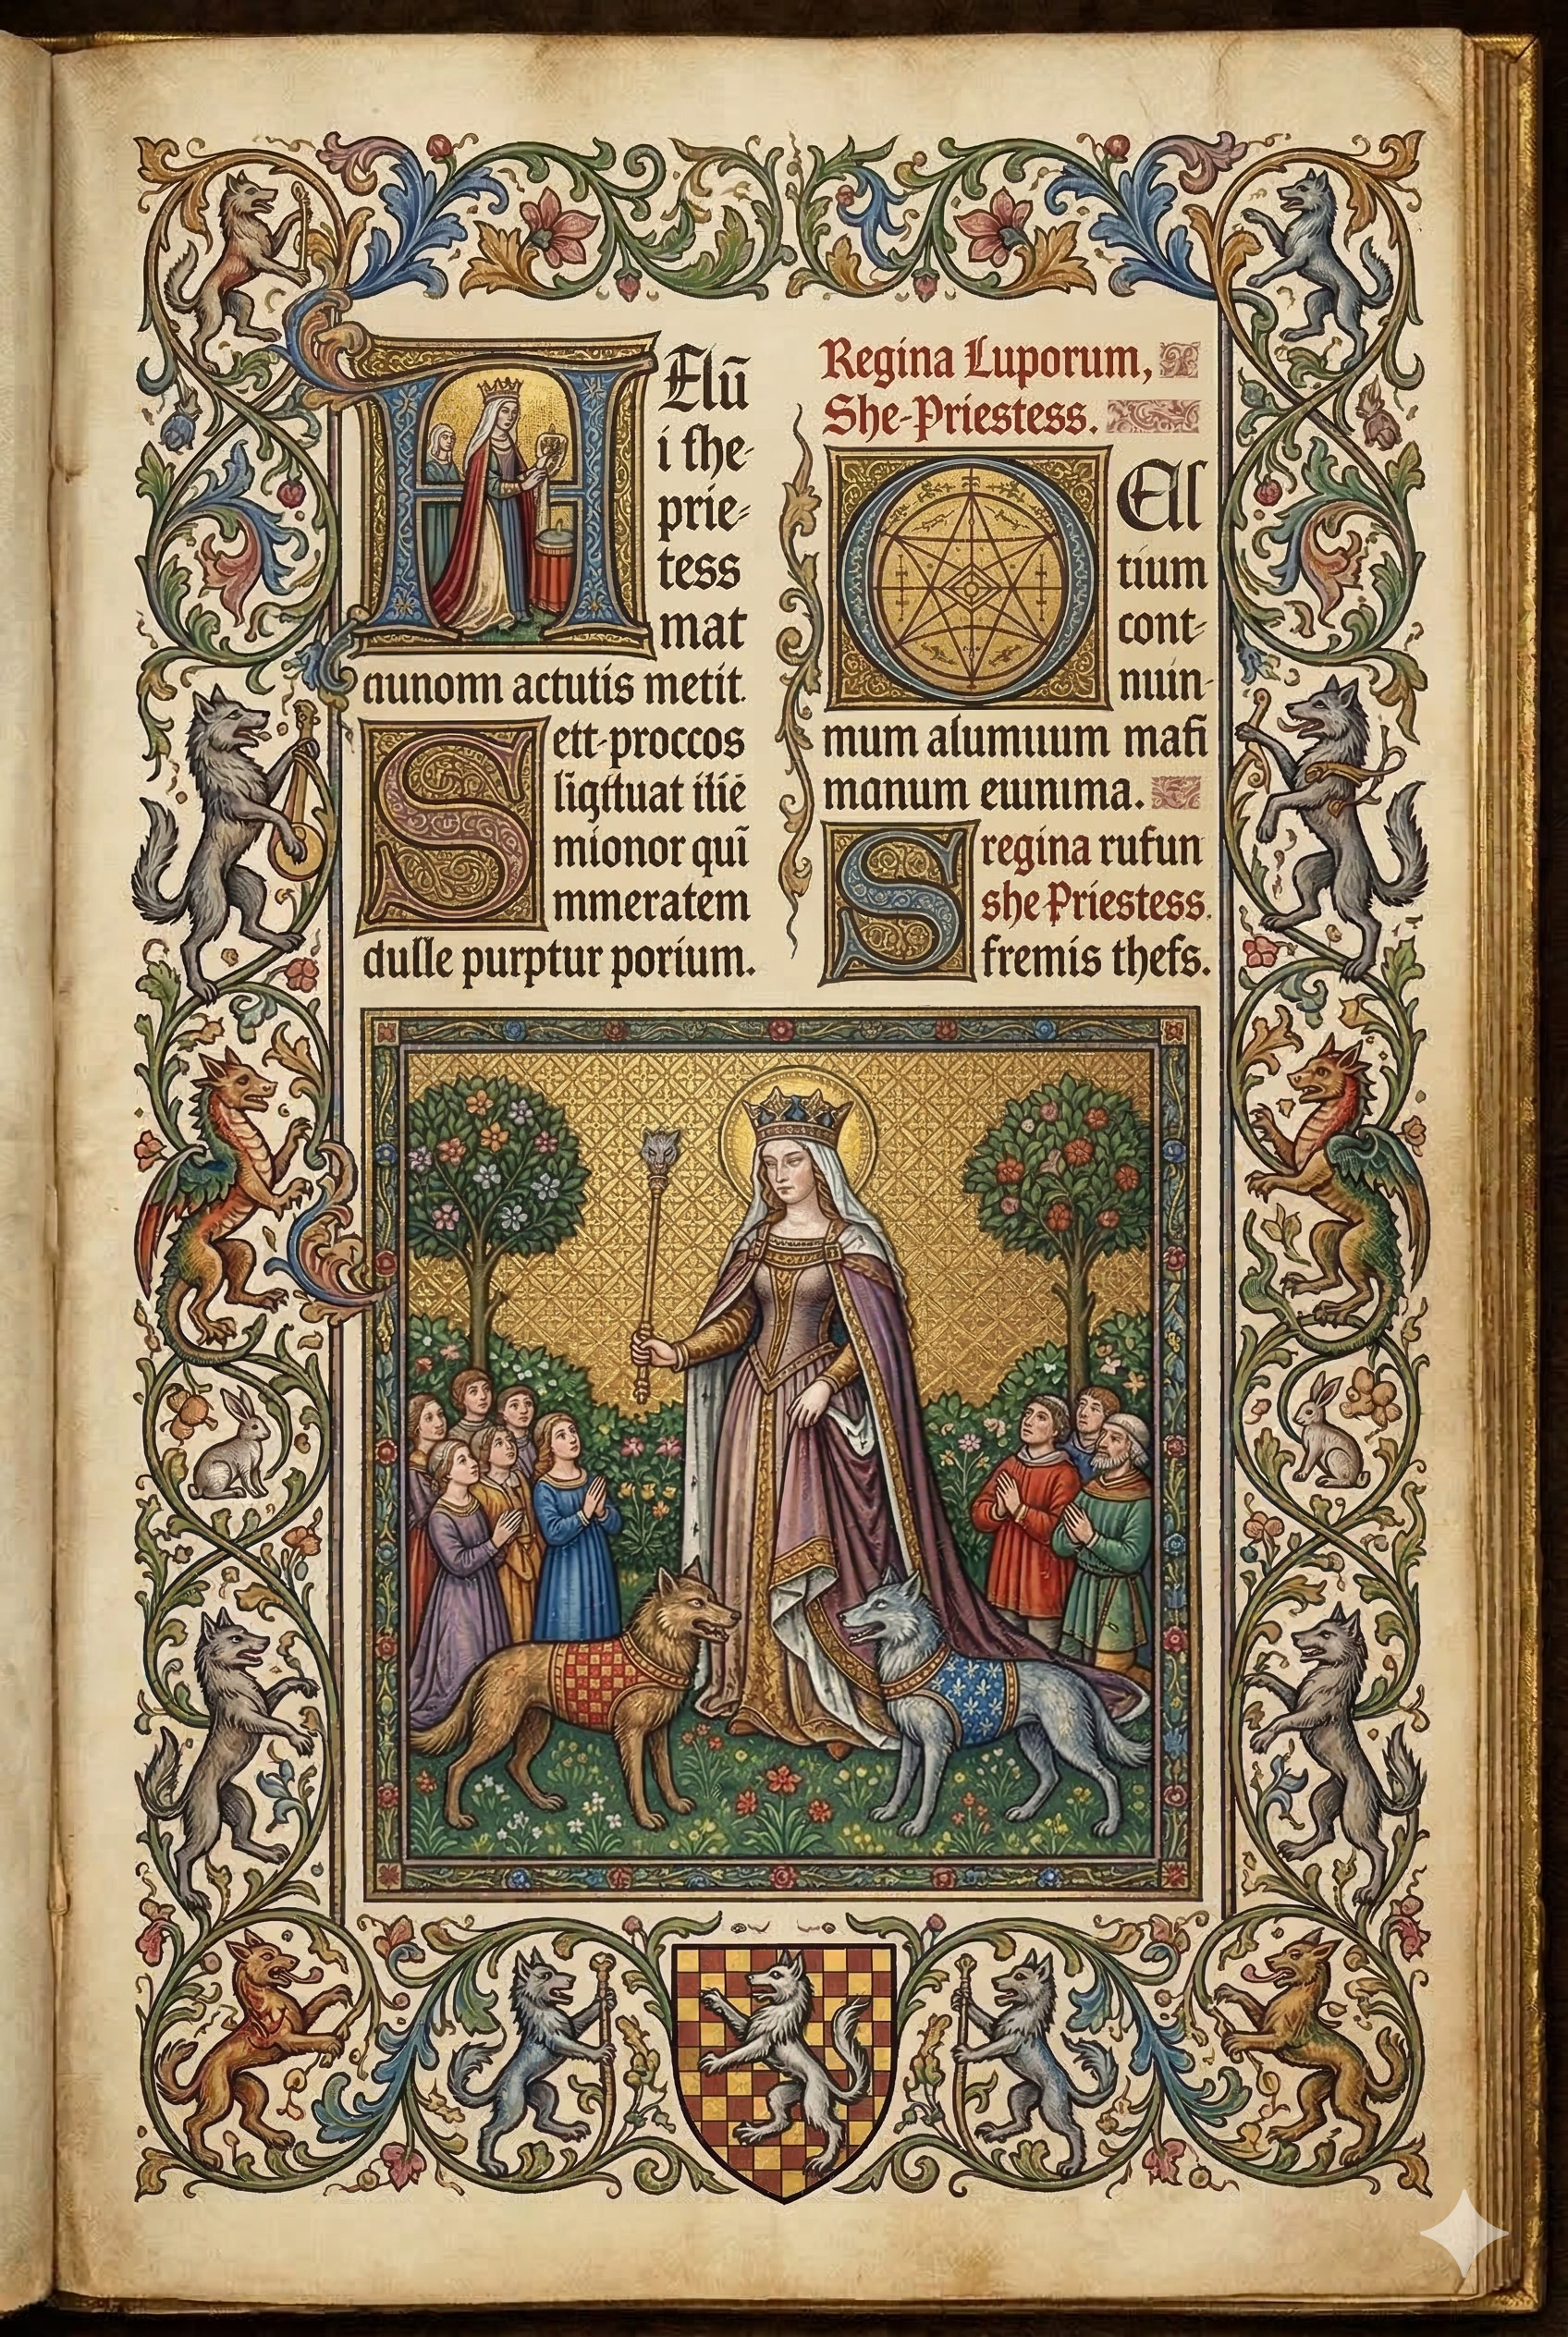 H Elū
i the-
prie-
tess
mat
nunonn actutis metit.
Sett-proccos
ligituat itiē
mionor quī
mmeratem
dulle purptur porium.
Regina Luporum,
She-Priestess.
O Al
tium
cont-
nuin-
mum alumuum mafi
manum ewnima.
S regina rufun
she Priestess.
fremis thefs.